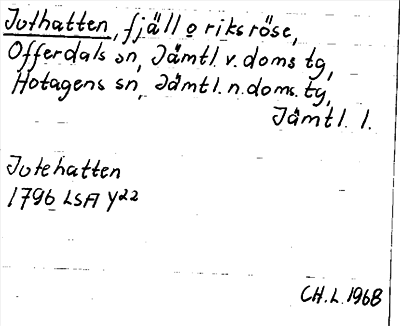 Juthatten, fjäll o riksröse,
Offerdals sn, Jämtl. v. doms tg,
Hotagens sn, Jämtl. n. doms. tg,
Jämtl. l.
Jutehatten
1796 LSA Y22
CH.L. 1968